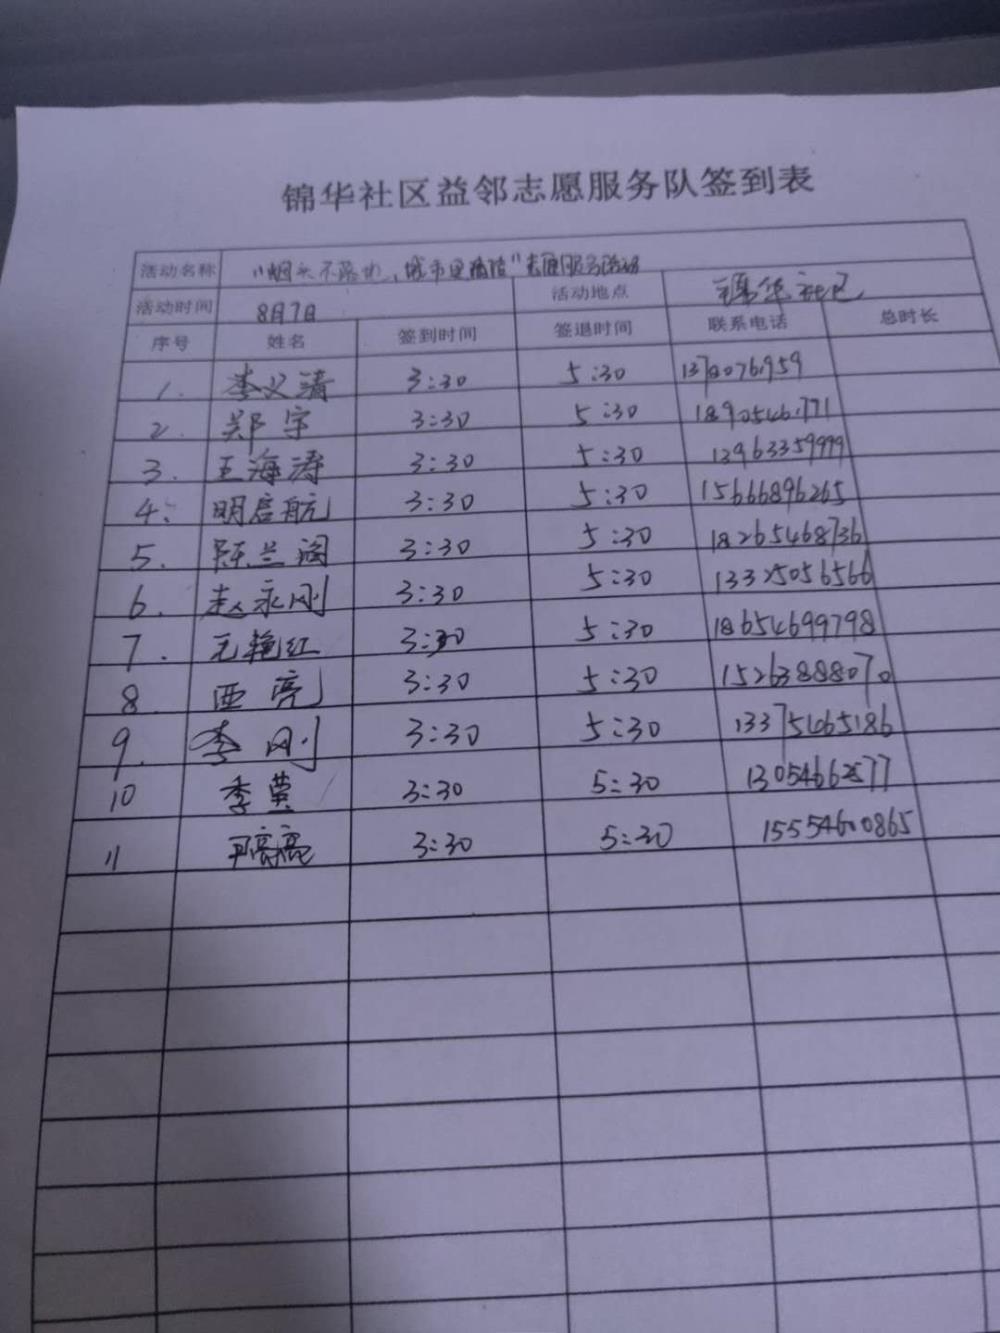 锦华社区益邻志愿服务队签到表
活动名称 "烟头不落地,城市更清洁"志愿服务活动
活动时间 8月7日 活动地点 锦华社区
序号 姓名 签到时间 签退时间 联系电话 总时长
1. 李义清 3:30 5:30
2. 郑宇 3:30 5:30 18905461771
3. 王海涛 3:30 5:30 13963359999
4. 明启航 3:30 5:30 15666896265
5. 陈兰阔 3:30 5:30 18265468736
6. 赵永刚 3:30 5:30 13325056566
7. 王艳红 3:30 5:30 18654699798
8 西亮 3:30 5:30 15263888070
9. 李刚 3:30 5:30 13375465186
10 季 3:30 5:30 13054662577
11 亮亮 3:30 5:30 15554600865